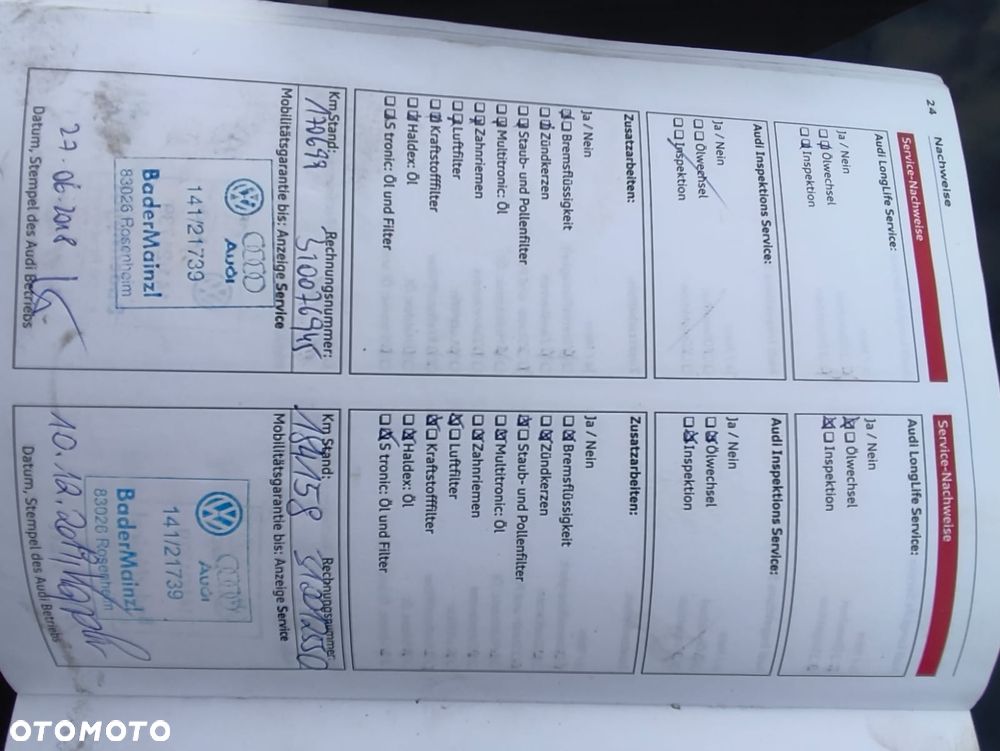 24
Nachweise
Service-Nachweise
Audi LongLife Service:
Ja / Nein
Ölwechsel
Inspektion
Audi Inspektions Service:
Ja / Nein
Ölwechsel
Inspektion
Zusatzarbeiten:
Ja / Nein
Bremsflüssigkeit
Zündkerzen
Staub- und Pollenfilter
Multitronic: Öl
Zahnriemen
Luftfilter
Kraftstofffilter
Haldex: Öl
S tronic: Öl und Filter
Km Stand: Rechnungsnummer:
170699
Mobilitätsgarantie bis: Anzeige Service
Audi
141/21739
BaderMainzl
83026 Rosenheim
27.06.2018
Datum, Stempel des Audi Betriebs
Service-Nachweise
Audi LongLife Service:
Ja / Nein
Ölwechsel
Inspektion
Audi Inspektions Service:
Ja / Nein
Ölwechsel
Inspektion
Zusatzarbeiten:
Ja / Nein
Bremsflüssigkeit
Zündkerzen
Staub- und Pollenfilter
Multitronic: Öl
Zahnriemen
Luftfilter
Kraftstofffilter
Haldex: Öl
S tronic: Öl und Filter
Km Stand: Rechnungsnummer
Mobilitätsgarantie bis: Anzeige Service
Audi
141/21739
BaderMainzl
83026 Rosenheim
Datum, Stempel des Audi Betriebs
OTOMOTO